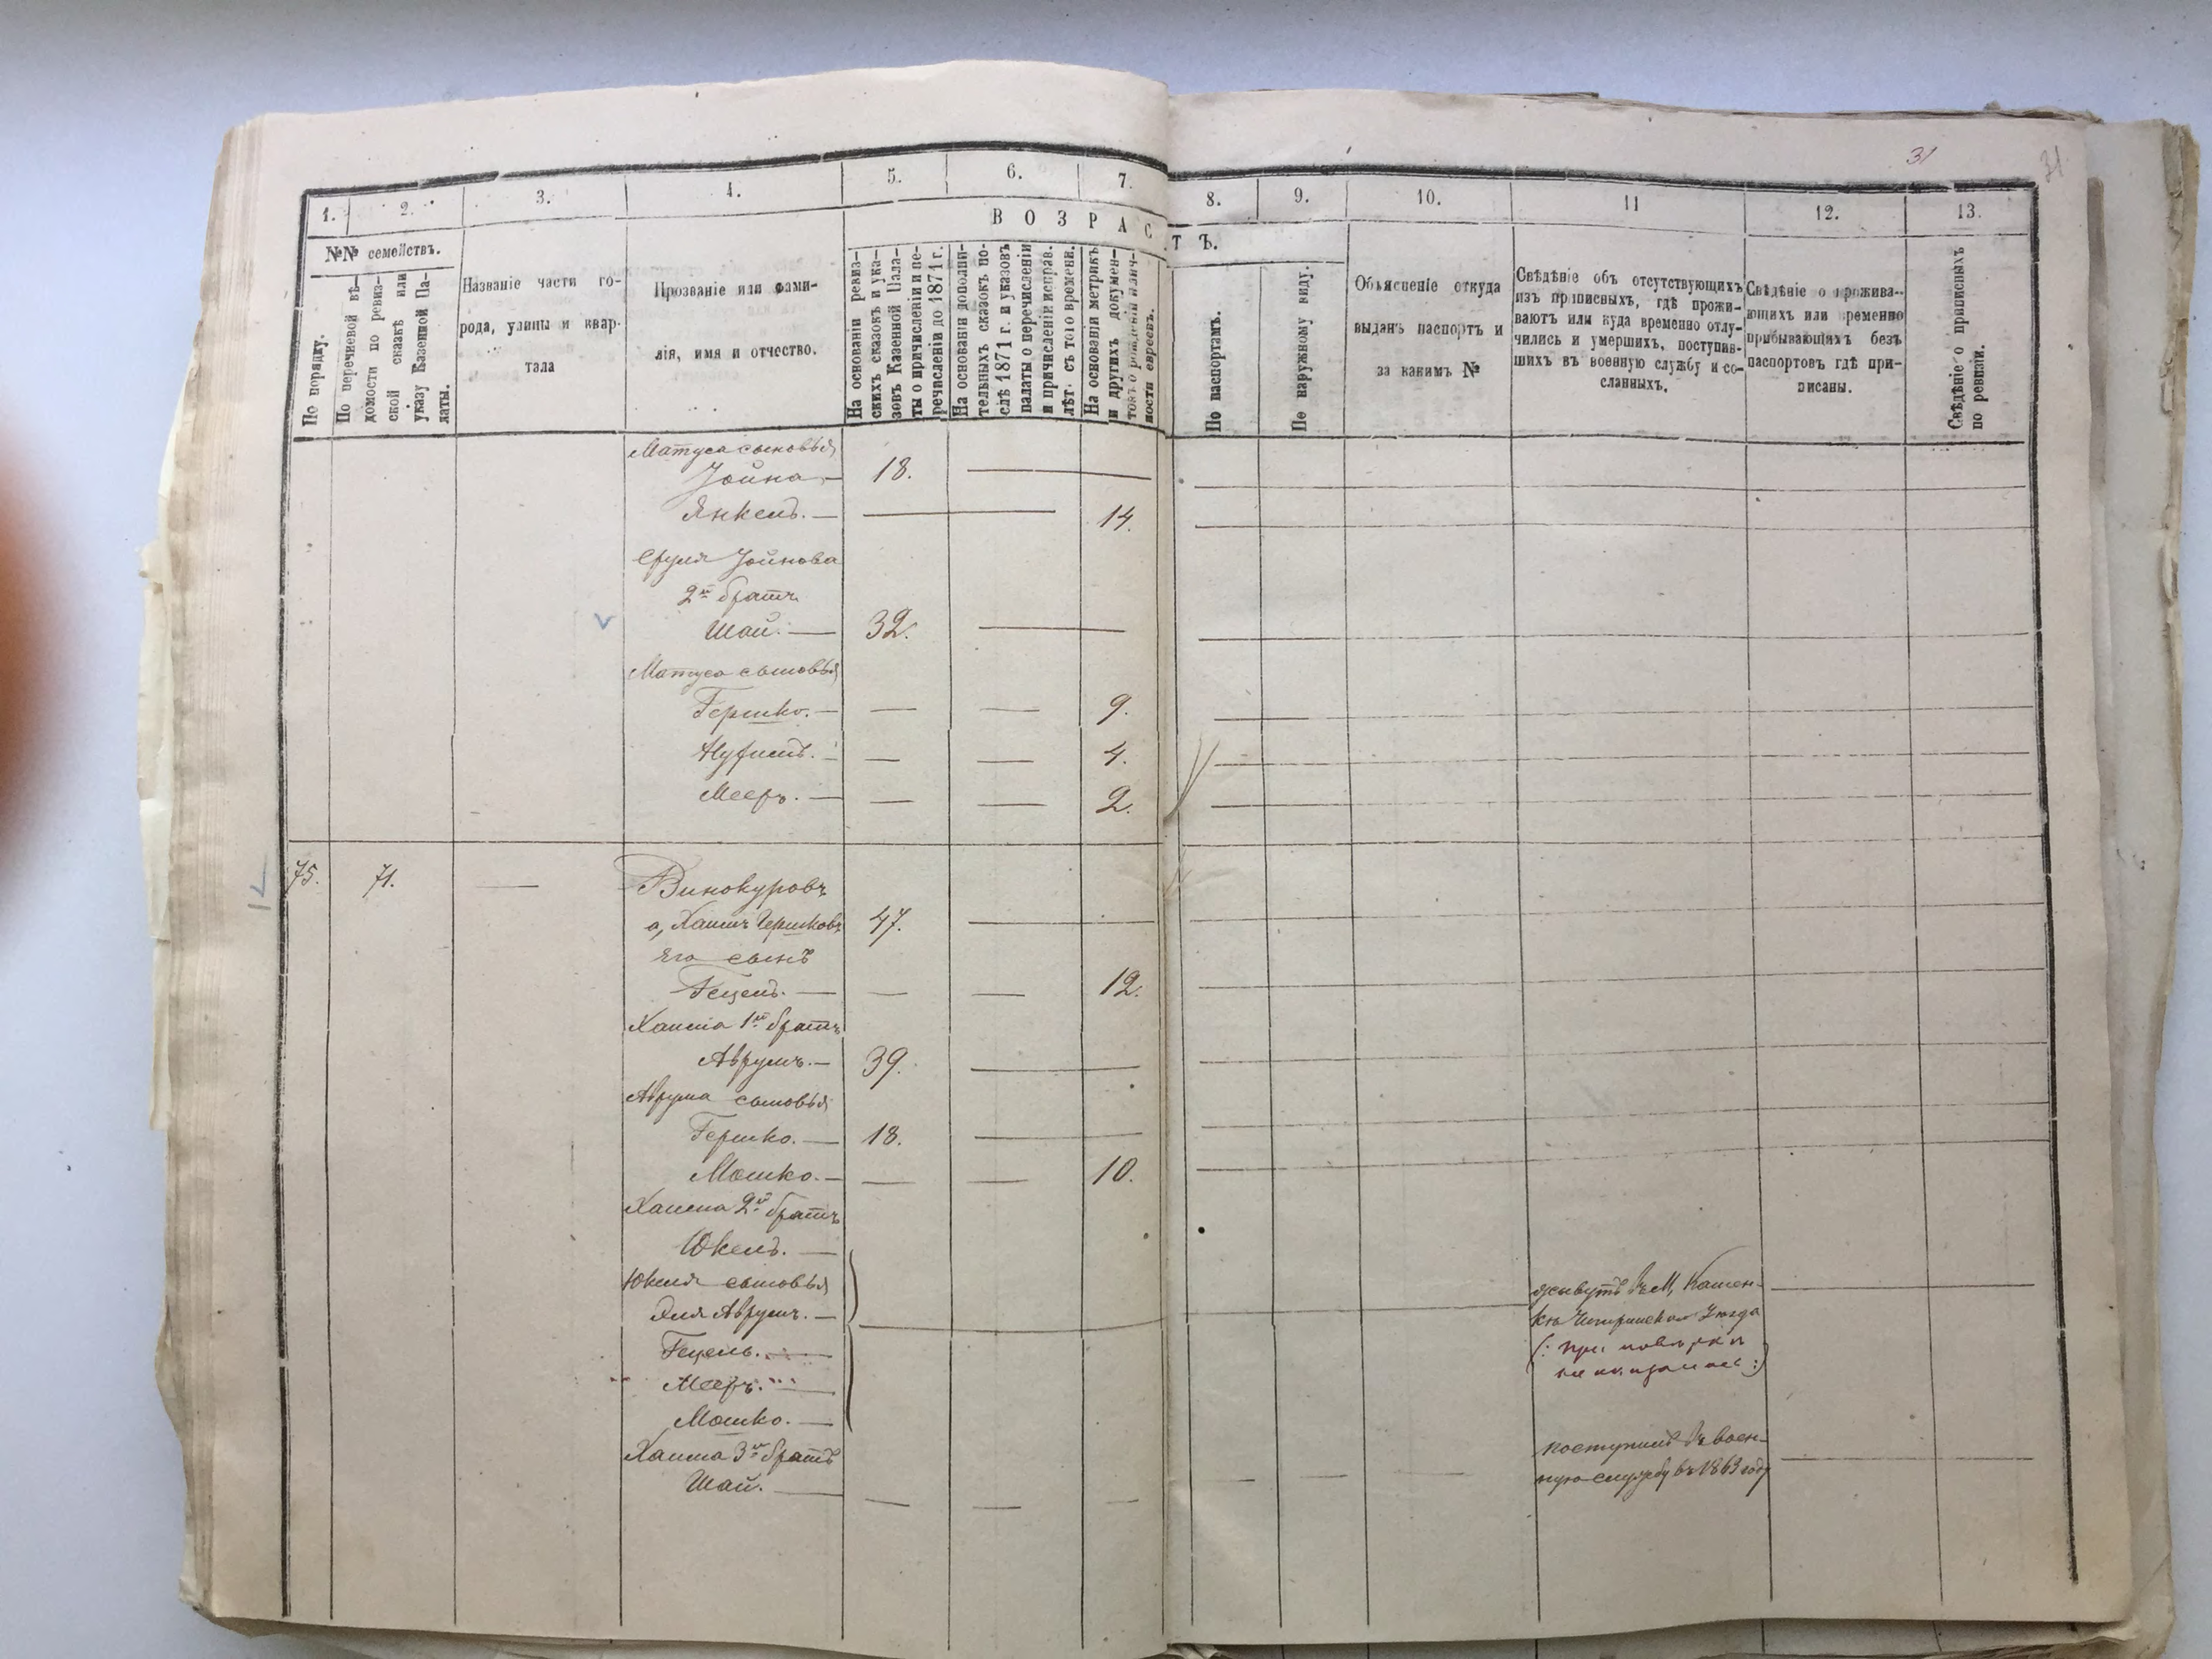 31
31
1. 2. 3. 4. 5. 6. 7. 8. 9. 10. 11 12. 13.
№№ семействъ.
ВОЗРАСТЪ.
По порядку.
По перечневой вѣ-
домости по ревиз-
ской сказкѣ или
указу Казенной Па-
латы.
Названіе части го-
рода, улицы и квар-
тала
Прозваніе или фами-
лія, имя и отчество.
На основаніи ревиз-
скихъ сказокъ и ука-
зовъ Казенной Пала-
ты о причисленіи и пе-
речисленіи до 1871 г.
На основаніи дополни-
тельныхъ сказокъ по-
слѣ 1871 г. и указовъ
палаты о перечисленіи
и причисленіи исправ.
лѣтъ съ того времени.
На основаніи метрикъ
и другихъ докумен-
товъ о рожденіи
ности евреевъ.
По паспортамъ.
По наружному виду.
Объясненіе откуда
выданъ паспортъ и
за какимъ №
Свѣдѣніе объ отсутствующихъ
изъ приписныхъ, гдѣ прожи-
ваютъ или куда временно отлу-
чились и умершихъ, поступив-
шихъ въ военную службу и со-
сланныхъ.
Свѣдѣніе о прожива-
ющихъ или временно
прибывающихъ безъ
паспортовъ гдѣ при-
писаны.
Свѣдѣніе о приписныхъ
по ревизіи.
Матуса сыновья
Іойна — 18.
Янкель. — 14.
Сруля Іойнова
2й братъ
Шая. — 32.
Матуса сыновья
Гершко. — 9.
4.
Мееръ. — 2.
75. 71. — Винокуровъ
а, Хаимъ Гершковъ 47.
Его сынъ
Гецель. — 12.
Хаима 1й братъ
Аврумъ. — 39.
Аврума сыновья
Гершко. — 18.
Мошко. — 10.
Хаима 2й братъ
Юкель. —
Юкеля сыновья
Эля Аврумъ. —
Гецель. —
Мееръ. —
Мошко. —
живутъ въ М, Камен-
кѣ Чигиринскаго Уѣзда
(: при повѣркѣ
не оказалось :)
Хаима 3й братъ
Шая. —
поступилъ въ воен-
ную службу въ 1863 году